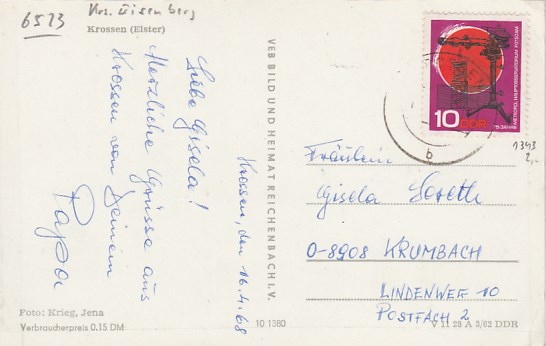 6523
Krs. Eisenberg
Krossen (Elster)
Krossen, den 16.4.68
Liebe Gisela!
Herzliche Grüsse aus
Krossen von Deinem
Papa
Foto: Krieg, Jena
Verbraucherpreis 0.15 DM
VEB BILD UND HEIMAT REICHENBACH I.V.
10 1380
V 11 28 A 3/62 DDR
10 DDR
75 JAHRE
METEOROL. HAUPTOBSERVATORIUM POTSDAM
b
1343
2,-
Fräulein
Gisela
O-8908 KRUMBACH
LINDENWEG 10
POSTFACH 2